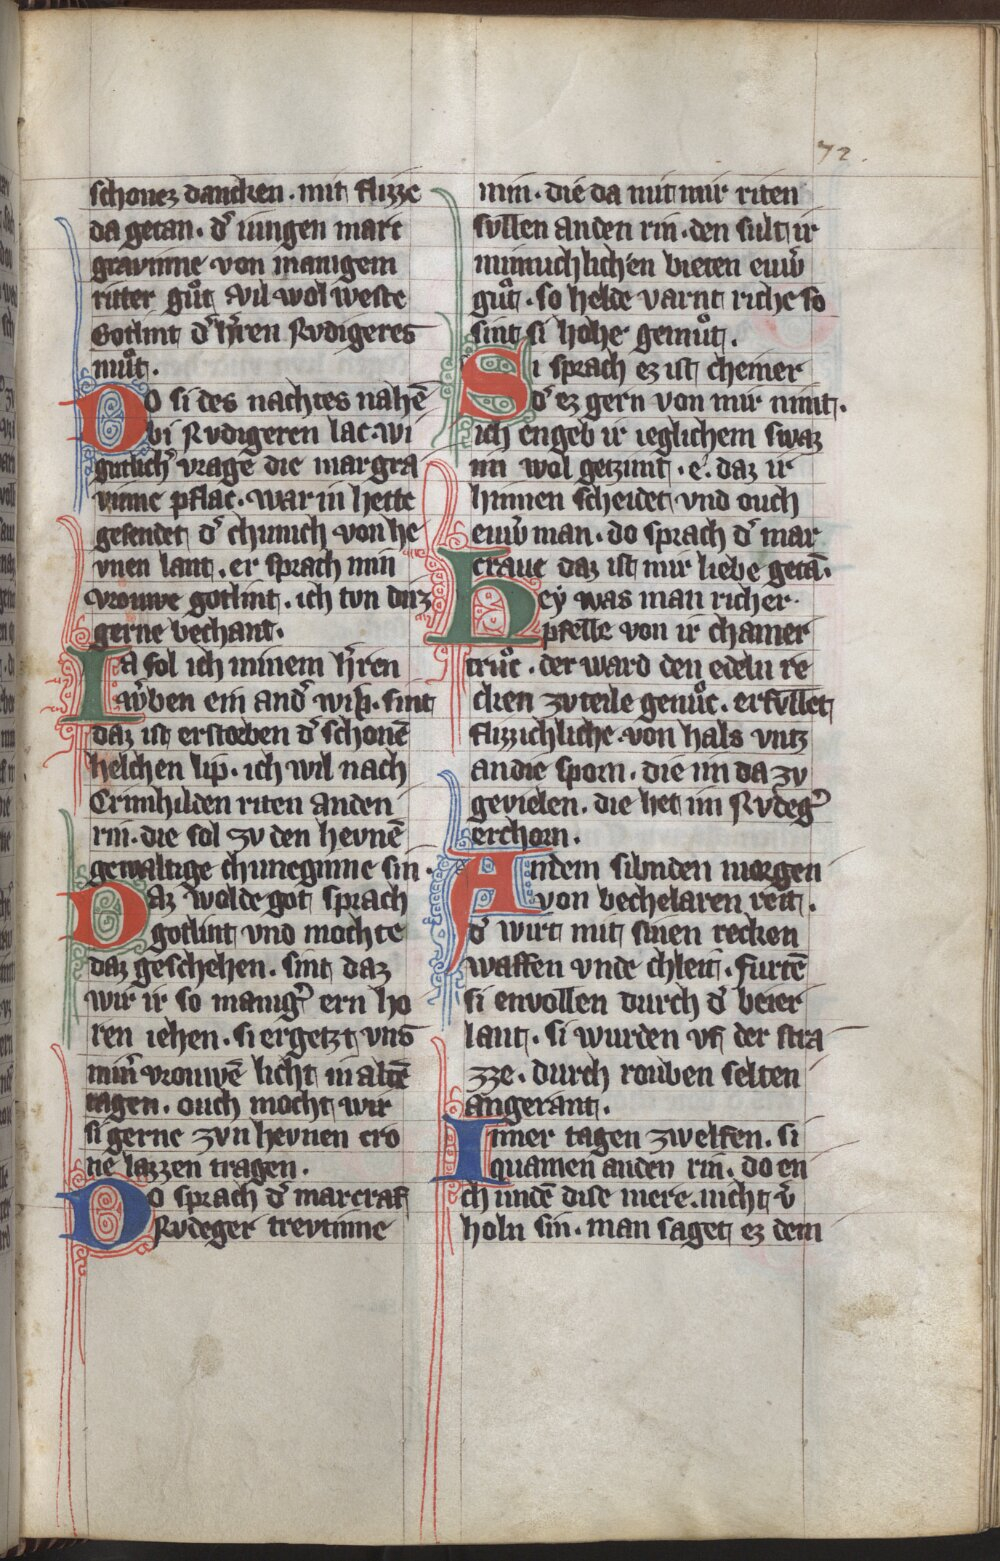 72.
schonez dancken. mit flizze
da getan. dˀ iungen marc
gravinne von manigem
ritter guͦt Vil wol weste
Gotlint dˀ hˀren Rvdigeres
muͦt.
Do si des nachtes nahē
bi Rvdigeren lac. wi
gutlichˀ vrage die margra
vinne pflac. war in hette
gesendet dˀ chunich von he
vnen lant. er sprach min
vrouwe gotlint. ich tvn dirz
gerne bechant.
Ia sol ich minem hˀren
wˀben ein andˀ wip. sint
daz ist erstorben dˀ schonē
helchen lip. ich wil nach
Crimhilden riten anden
rin. die sol zv den hevnē
gewaltige chuneginne sin.
Daz wolde got sprach
gotlint vnd mochte
daz geschehen. sint daz
wir ir so manigˀ ern ho
ren iehen. si ergetzt vns
minˀ vrouwē licht in altē
tagen. ouch mocht wir
si gerne zvn hevnen cro
ne lazzen tragen.
Do sprach dˀ marcraf
Rvdeger trevtinne
min. die da mit mir riten
svllen anden rin. den sult ir
minnichlichen bieten euwˀ
guͦt. so helde varnt riche so
sint si hohe gemuͦt.
Si sprach ez ist cheiner
dˀ ez gern von mir nimt.
ich engeb ir ieglichem swaz
im wol getzimt. e. daz ir
hinnen scheidet vnd ouch
euwˀ man. do sprach dˀ mar
craue daz ist mir liebe getā.
Hey was man richer
pfelle von ir chamer
truͦc. der ward den edeln re
cken zv teile genuͦc. erfvllet
flizzichliche. von hals vntz
an die sporn. die im da zv
gevielen. die het im Rvdegˀ
erchorn.
An dem sibnden morgen
von bechelaren reit.
dˀ wirt mit sinen recken
waffen vnde chleit. furtē
si envollen durch dˀ beier
lant. si wurden vf der stra
zze. durch rouben selten
angerant.
Inner tagen zwelfen. si
quamen anden rin. do en
chundē dise mere. nicht vˀ
holn sin. man saget ez dem